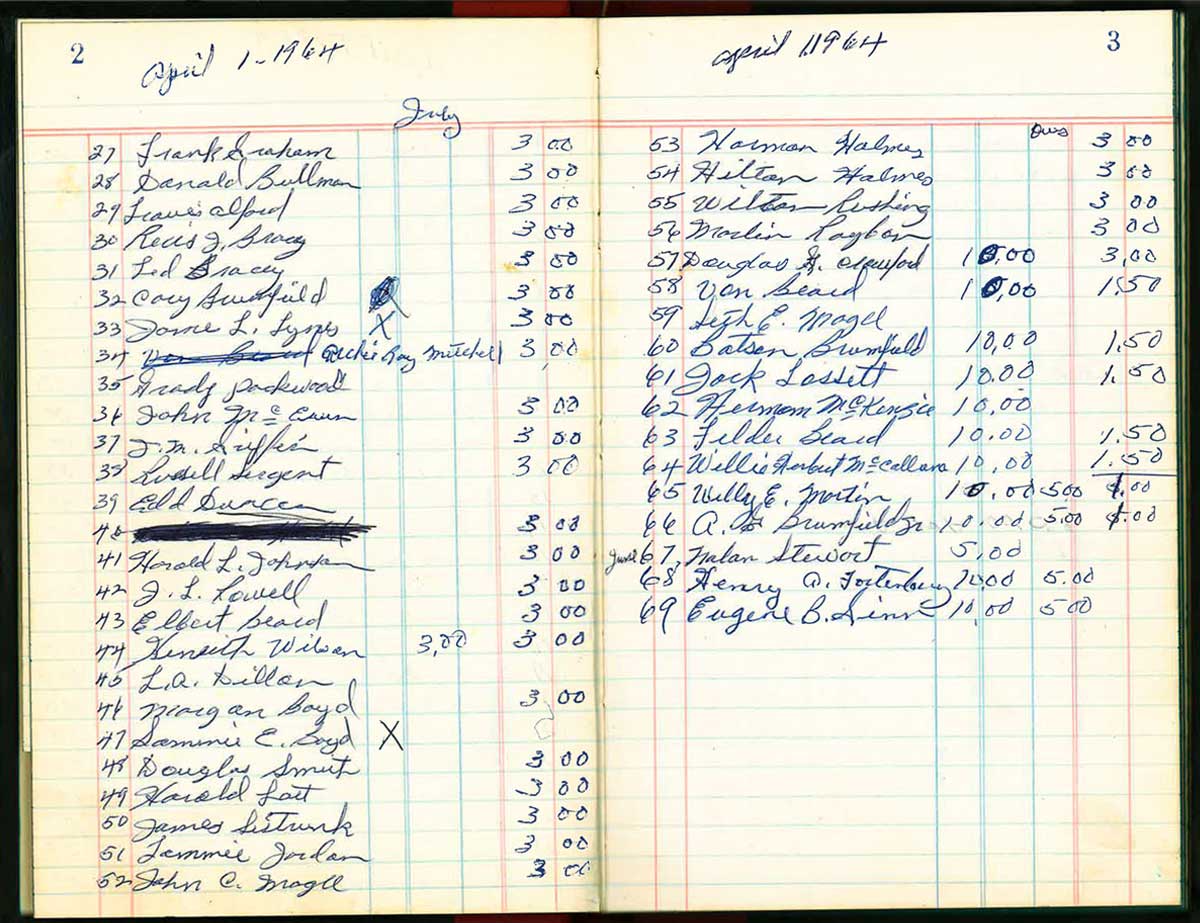 2
April 1-1964
July
27 Frank Graham 3 00
28 Donald Bullman 3 00
29 Travis Alford 3 00
30 J. Bracy 3 00
31 Ted Bracey 3 00
32 Cary Brumfield 3 00
33 L. X 3 00
34 Archie Ray Mitchell 3,00
35 Grady Packwood
36 John Mc Ewen 3 00
37 J. M. Griffin 3 00
38 Russell Sergent 3 00
39 Edd Duncan
40 3 00
41 Harold L. Johnson 3 00
42 J. L. Rowell 3 00
43 Elbert Beard 3 00
44 Wilson 3,00 3 00
45 L.A. Dillon
46 Morgan Boyd 3 00
47 Sammie E. Boyd X
48 Douglas Smith 3 00
49 Harold 3 00
50 James Sistrunk 3 00
51 Jordan 3 00
52 John C. Magee 3 00
3
April 1, 1964
Dues
53 Holmes 3 00
54 Hilton Holmes 3 00
55 Wilton Rushing 3 00
56 Marlin Raybon 3 00
57 Douglas Crawford 10.00 3,00
58 Van Beard 10,00 1.50
59 Seth E. Magee
60 Batson Brumfield 10,00 1.50
61 Jack 10.00 1.50
62 Herman McKenzie 10,00
63 Felder Beard 10.00 1.50
64 Willie Herbert 10,00 1.50
65 Willy E. Martin 10.00 5.00
66 A. Brumfield Jr 10.00 5.00
June 67, Nolan Stewart 5,00
68 Henry A. 10.00 5.00
69 Eugene B. 10.00 5 00